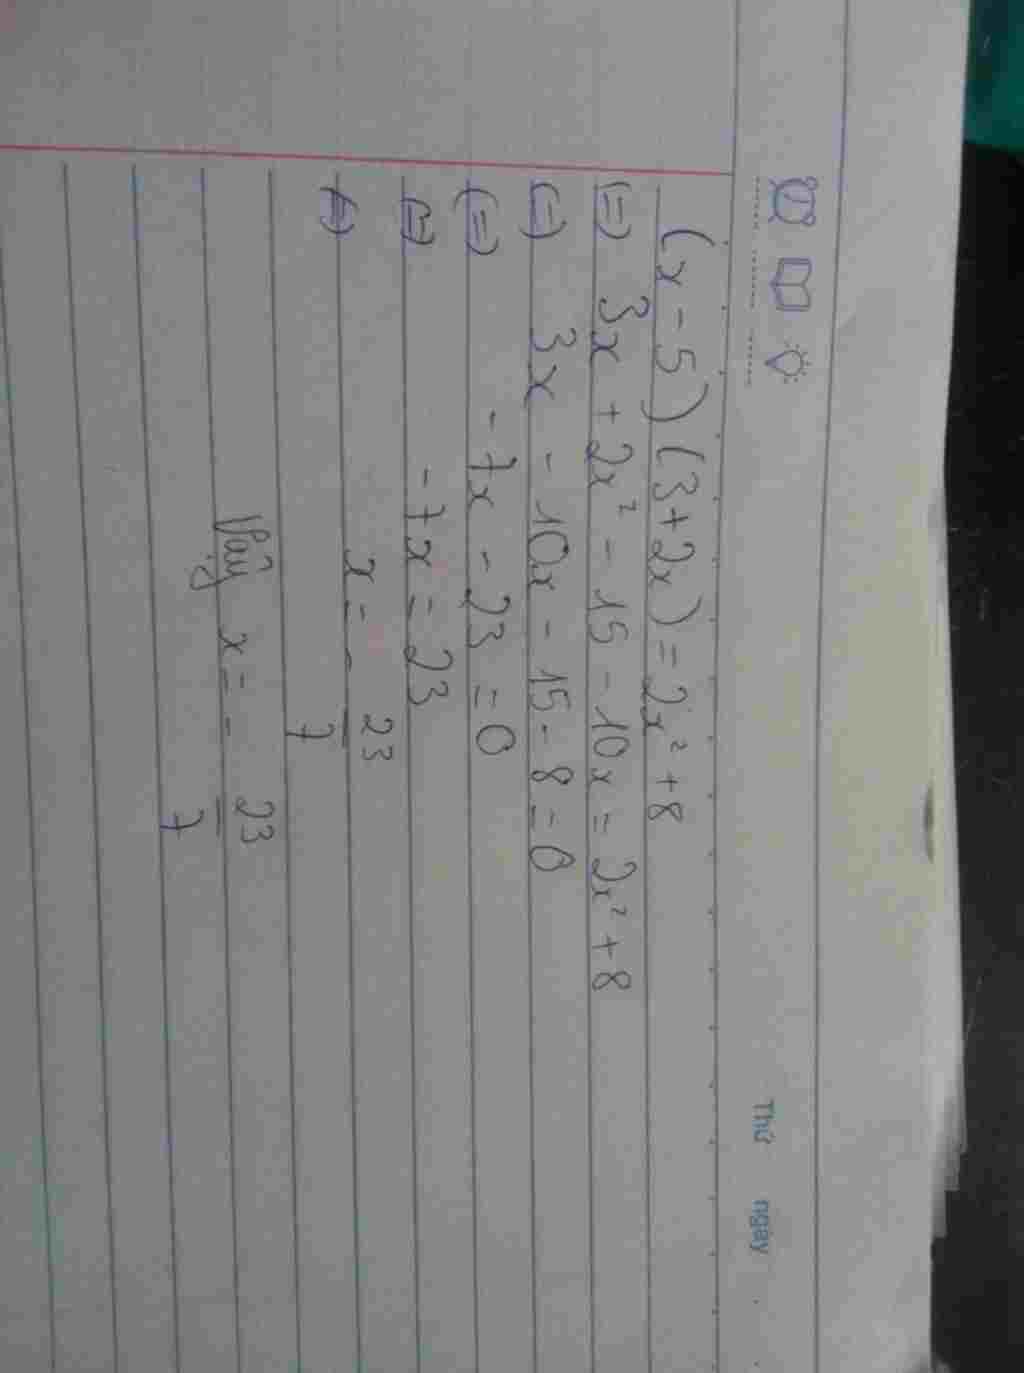 Thứ ngày
(x - 5) (3 + 2x) = 2x² + 8
(=) 3x + 2x² - 15 - 10x = 2x² + 8
(=) 3x - 10x - 15 - 8 = 0
(=) - 7x - 23 = 0
(=) - 7x = 23
(=) x = - 23/7
Vậy x = - 23/7